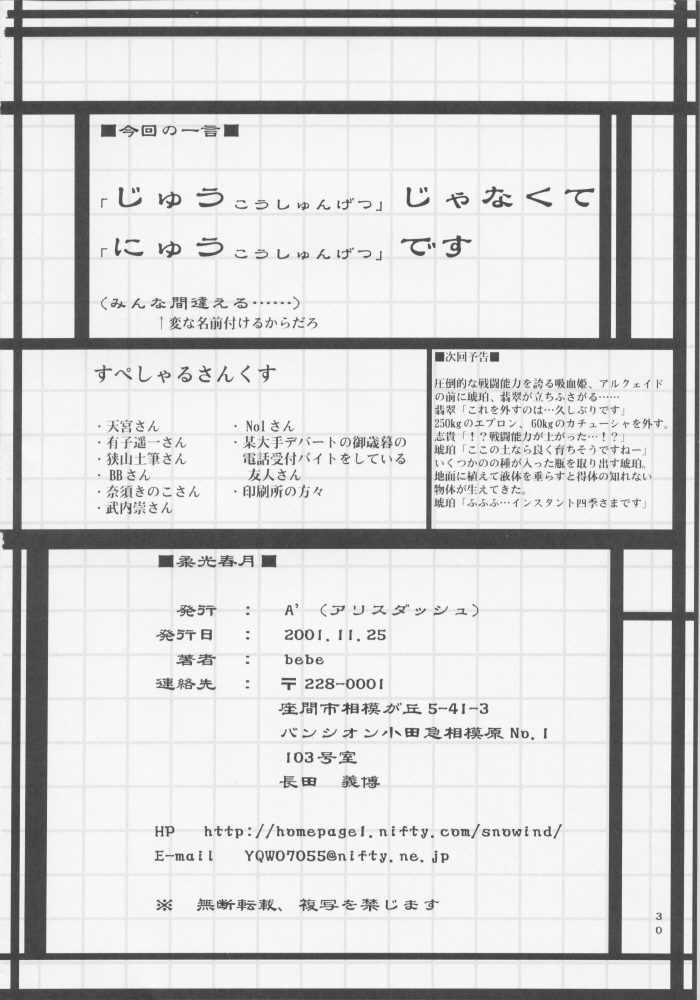 ■今回の一言■
「じゅうこうしゅんげつ」じゃなくて
「にゅうこうしゅんげつ」です
(みんな間違える……)
↑変な名前付けるからだろ
すぺしゃるさんくす
・天宮さん
・有子遥一さん
・狭山土筆さん
・BBさん
・奈須きのこさん
・武内崇さん
・No1さん
・某大手デパートの御歳暮の
電話受付バイトをしている
友人さん
・印刷所の方々
■次回予告■
圧倒的な戦闘能力を誇る吸血姫、アルクェイド
の前に琥珀、翡翠が立ちふさがる……
翡翠「これを外すのは…久しぶりです」
250kgのエプロン、60kgのカチューシャを外す。
志貴「!?戦闘能力が上がった…!?」
琥珀「ここの土なら良く育ちそうですねー」
いくつかのの種が入った瓶を取り出す琥珀。
地面に植えて液体を垂らすと得体の知れない
物体が生えてきた。
琥珀「ふふふ…インスタント四季さまです」
■柔光春月■
発行 : A'(アリスダッシュ)
発行日 : 2001.11.25
著者 : bebe
連絡先 : 〒228-0001
座間市相模が丘5-41-3
パンシオン小田急相模原No.1
103号室
長田 義博
HP http://homepage1.nifty.com/snowind/
E-mail YQW07055@nifty.ne.jp
※ 無断転載、複写を禁じます
30